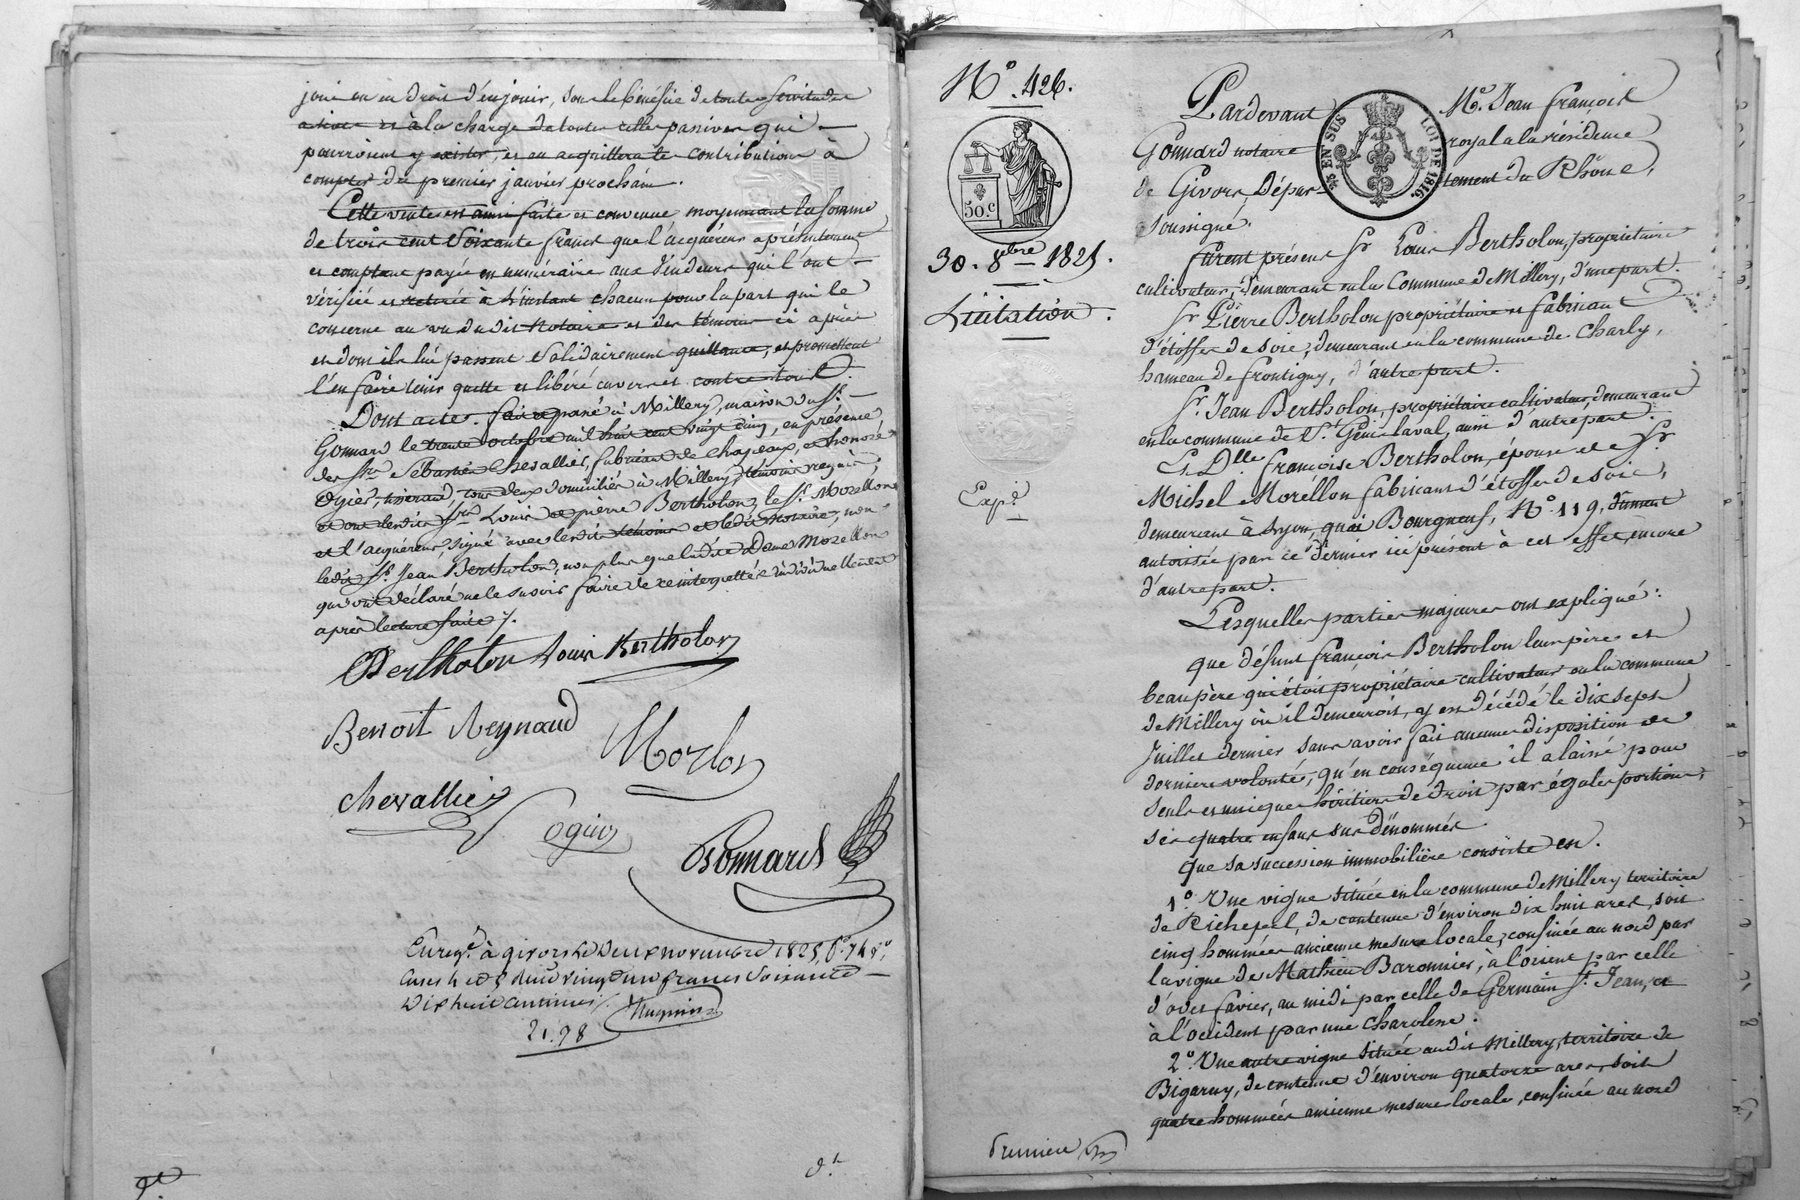 joui ou eu droit d'en jouir, sous le bénéfice de toutes servitudes
actives et à la charge de toutes celles passives qui
pourroient y exister, et en acquittera les contributions à
compter du premier janvier prochain.
Cette vente est ainsi faite et convenue moyennant la somme
de trois cent soixante francs que l'acquéreur a présentement
et comptant payée en numéraire aux vendeurs qui l'ont
vérifiée et retirée à l'instant chacun pour la part qui le
concerne au vu dudit notaire et des témoins ci après
et dont ils lui passent solidairement quittance, et promettent
l'en faire tenir quitte et libéré envers et contre tous.
Dont acte. fait et passé à Millery, maison du Sr.
Gonnard le trente octobre mil huit cent vingt cinq, en présence
des Srs Sébastien Chevallier, fabricant de chapeaux, et honoré
Ogier, tisserand, tous deux domiciliés à Millery, témoins requis,
et ont lesdits Srs Louis et pierre Bertholon, le Sr. Morellon
et l'acquéreur, signé avec lesdits témoins et ledit notaire, non
ledit Sr. Jean Bertholon, non plus que ladite Dame Morellon
qui ont déclaré ne le savoir faire de ce interpellés individuellement
après lecture faite /.
Bertholon Louis Bertholon
Benoit Reynaud
Morlon
Chevallier
ogier
Gonnard
Enregé. à givors le deux novembre 1825, fo. 74 vo.
Cases 4 et 5 reçu vingt un francs soixante
dix huit centimes /.
21.78
N° 426.
50.c
EN SUS LOI DE 1816
30. 8bre 1825.
Licitation.
Expé.
Pardevant Me. Jean françois
Gonnard notaire royal à la résidence
de Givors, Département du Rhône,
soussigné.
furent présens Sr Louis Bertholon, propriétaire
cultivateur, demeurant en la Commune de Millery, d'une part.
Sr Pierre Bertholon propriétaire et fabricant
d'étoffes de soie, demeurant en la commune de Charly,
hameau de frontigny, d'autre part.
Sr. Jean Bertholon, propriétaire cultivateur, demeurant
en la commune de St. Genis laval, aussi d'autre part.
Et Dlle françoise Bertholon, épouse de Sr
Michel Morellon fabricant d'étoffes de soie,
demeurant à Lyon, quai Bourgneuf, N° 119, dument
autorisée par ce dernier ici présent à cet effet, encore
d'autre part.
Lesquelles parties majeures ont expliqué :
que défunt françois Bertholon leur père et
beau père qui étoit propriétaire cultivateur en la commune
de Millery où il demeuroit, y est décédé le dix sept
Juillet dernier sans avoir fait aucune disposition de
dernière volonté, qu'en conséquence il a laissé pour
seuls et uniques héritiers de droit par égales portions,
ses quatre enfans sus dénommés.
Que sa succession immobilière consiste en.
1° Une vigne située en la commune de Millery territoire
de Richefeel, de contenue d'environ dix huit ares, soit
cinq hommées ancienne mesure locale, confinée au nord par
la vigne de Mathieu Baronnier, à l'orient par celle
d'odet favier, au midi par celle de Germain St. Jean, et
à l'occident par une charolene.
2° Une autre vigne située audit Millery, territoire de
Bigarny, de contenue d'environ quatorze ares, soit
quatre hommées ancienne mesure locale, confinée au nord
Première